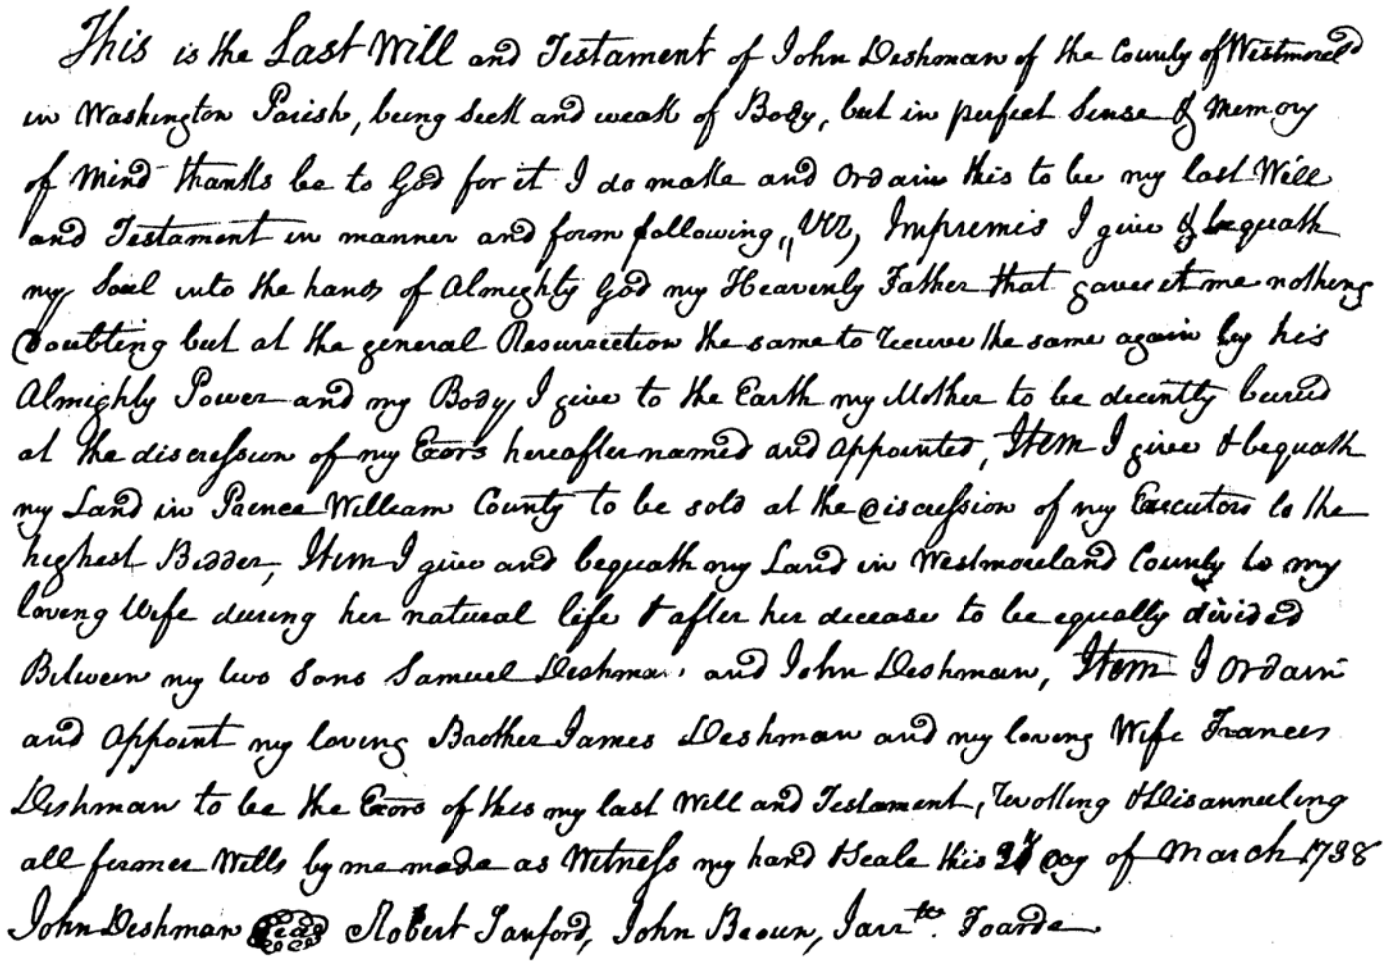 This is the Last Will and Testament of John Deshman of the County of Westmorel<sup>d</sup>
in Washington Parish, being Seek and weak of Body, but in perfect Sense & Memory
of Mind thanks be to God for it I do make and Ordain this to be my last Will
and Testament in manner and form following, Viz, Impremis I give & bequath
my Soul into the hands of Almighty God my Heavenly Father that gave it me nothing
doubting but at the general Resurrection the same to receive the same again by his
Almighty Power and my Body I give to the Earth my Mother to be decently buried
at the discression of my Exors hereafter named and appointed, Item I give & bequath
my Land in Prence William County to be sold at the discression of my Executors to the
highest Bidder, Item I give and bequath my Land in Westmoreland County to my
loving Wife during her natural life & after her decease to be equally divided
Between my two Sons Samuel Deshman and John Deshman, Item I Ordain
and appoint my loving Brother James Deshman and my loving Wife Frances
Deshman to be the Exors of this my last Will and Testament, revoking & Disannuling
all former Wills by me made as Witness my hand & Seale this day of March 1738
John Deshman Seal Robert Sanford, John Brown, Jarr<sup>tt</sup>. Foarde